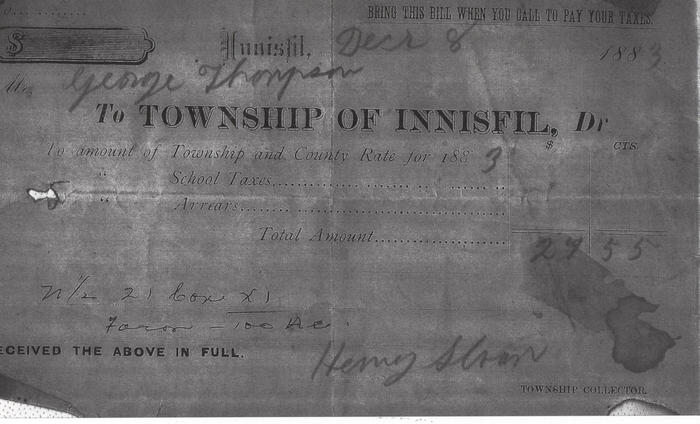 BRING THIS BILL WHEN YOU CALL TO PAY YOUR TAXES.
$
Innisfil, Decr 8 1883
Mr. George Thompson
To TOWNSHIP OF INNISFIL, Dr
$ CTS.
To amount of Township and County Rate for 1883
" School Taxes
" Arrears
Total Amount 29 55
N/2 21 Con XI
Farm - 100 Ac.
ECEIVED THE ABOVE IN FULL.
Henry Sloan
TOWNSHIP COLLECTOR.